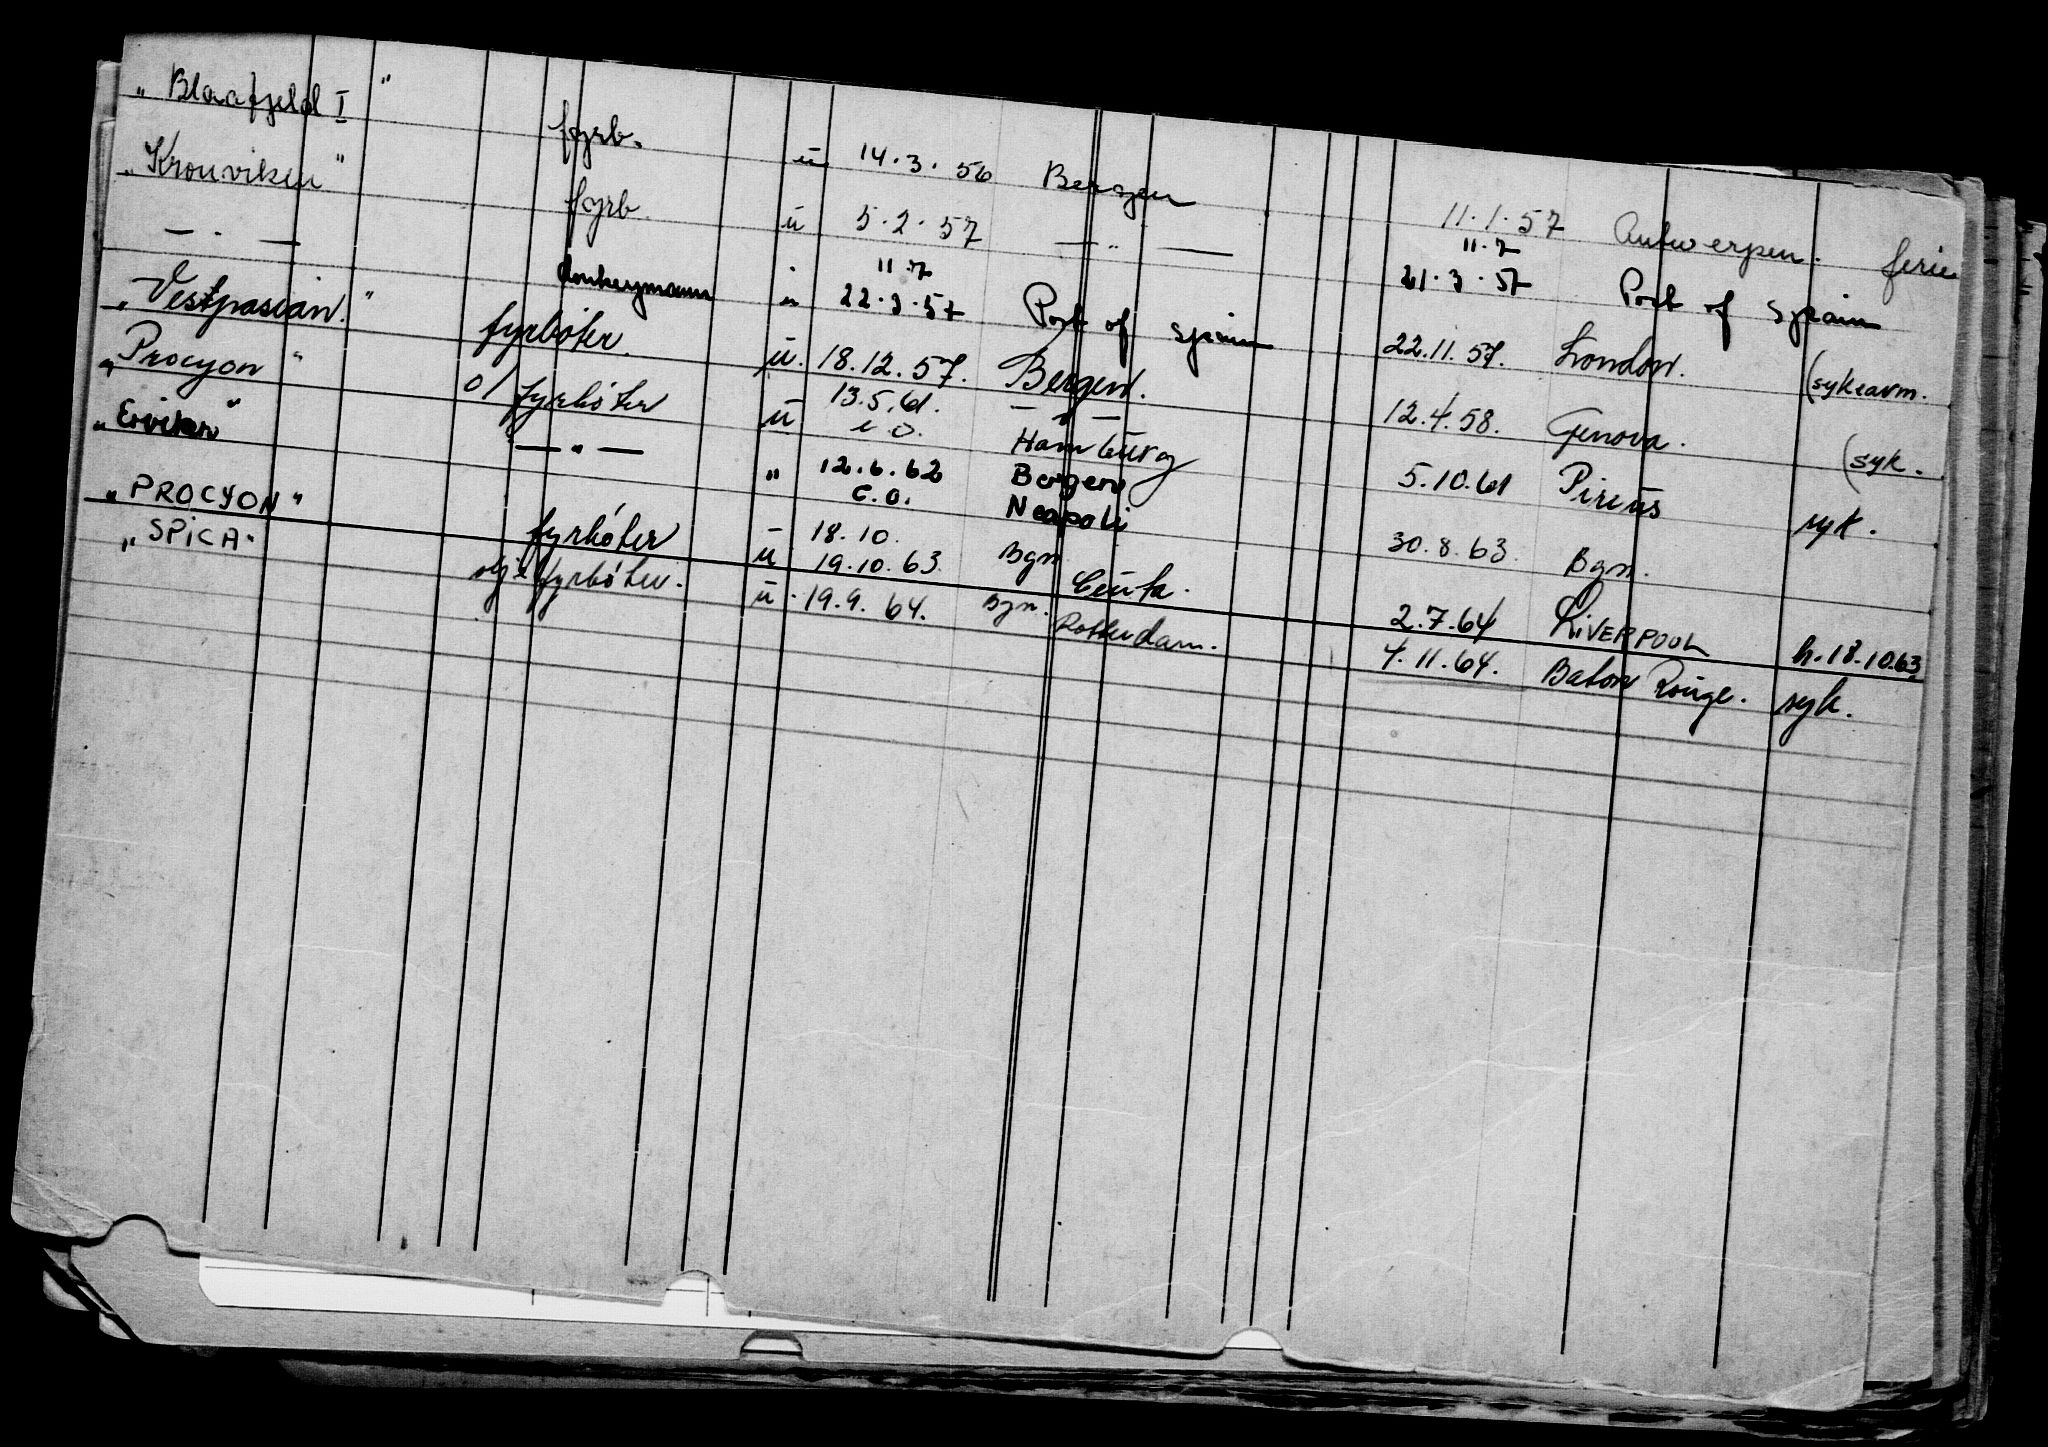 „ Blaafjeld I " fyrb. u 14.3.56 Bergen 11.1.57 Antwerpen. ferie
„Kronviken" fyrb. u 5.2.57 — " — 11.7 21.3.57 Port of Spain
— . — donkeymann " 11.7 22.3.57 Port of Spain 22.11.57. London. (sykeavm.
„Vestpasian." fyrbóter. u. 18.12.57. Bergen. 12.4.58. Genova. (syk.
„Procyon" o/fyrbóter u 13.5.61. — " — Hamburg 5.10.61 Pireus syk.
„Erviken" — " — " 12.6.62 Bergen 30.8.63. Bgn.
c.o. Neapoli
„PROCYON" fyrbóter – 18.10. Bgn 2.7.64 LIVERPOOL h.18.10.63
u 19.10.63. Ceuta.
„SPICA" fyrbóter. u. 19.9.64. Bgn. Rotterdam. 4.11.64. Baton Rouge. syk.